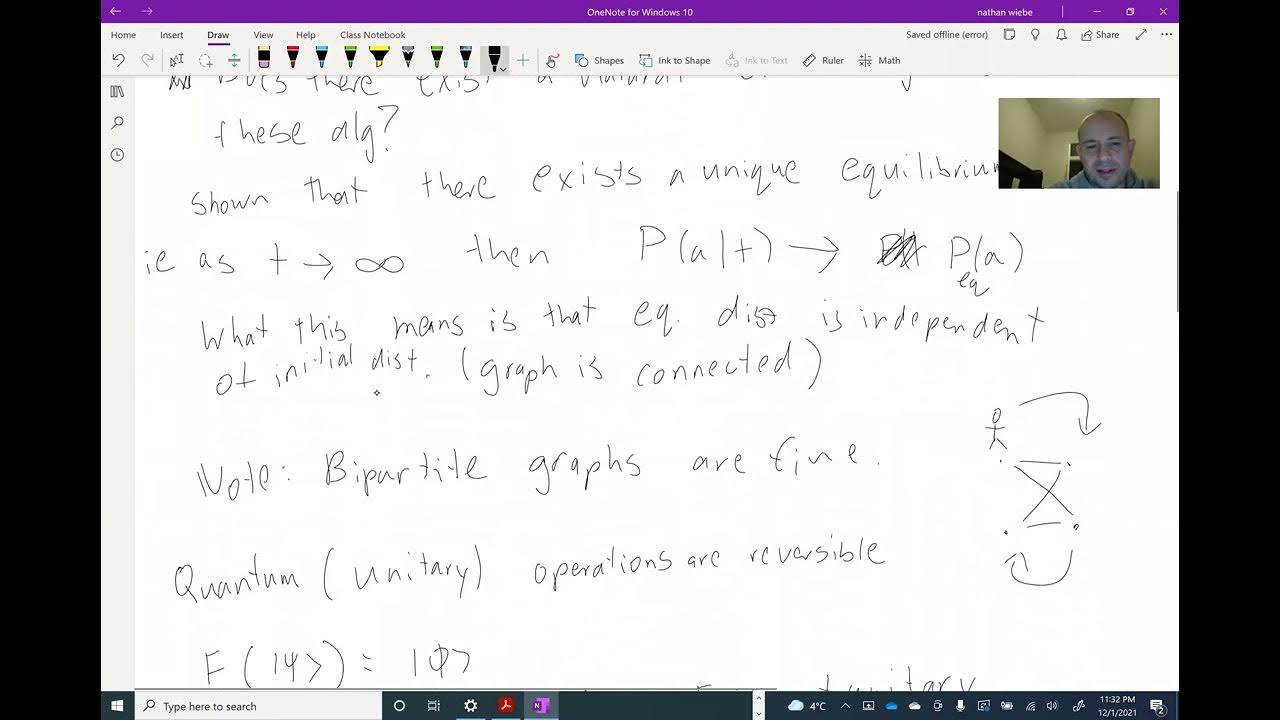 OneNote for Windows 10
nathan wiebe
Home Insert Draw View Help Class Notebook
Saved offline (error) Share
Shapes Ink to Shape Ink to Text Ruler Math
Does there exist a
these alg?
shown that there exists a unique equilibrium
ie as t → ∞ then P(a|t) → P(a)
eq
What this means is that eq. dist is independent
of initial dist. (graph is connected)
Note: Bipartite graphs are fine.
Quantum (unitary) operations are reversible
F(|ψ>) = |φ>
unitary
Type here to search
4°C
11:32 PM
12/1/2021
2